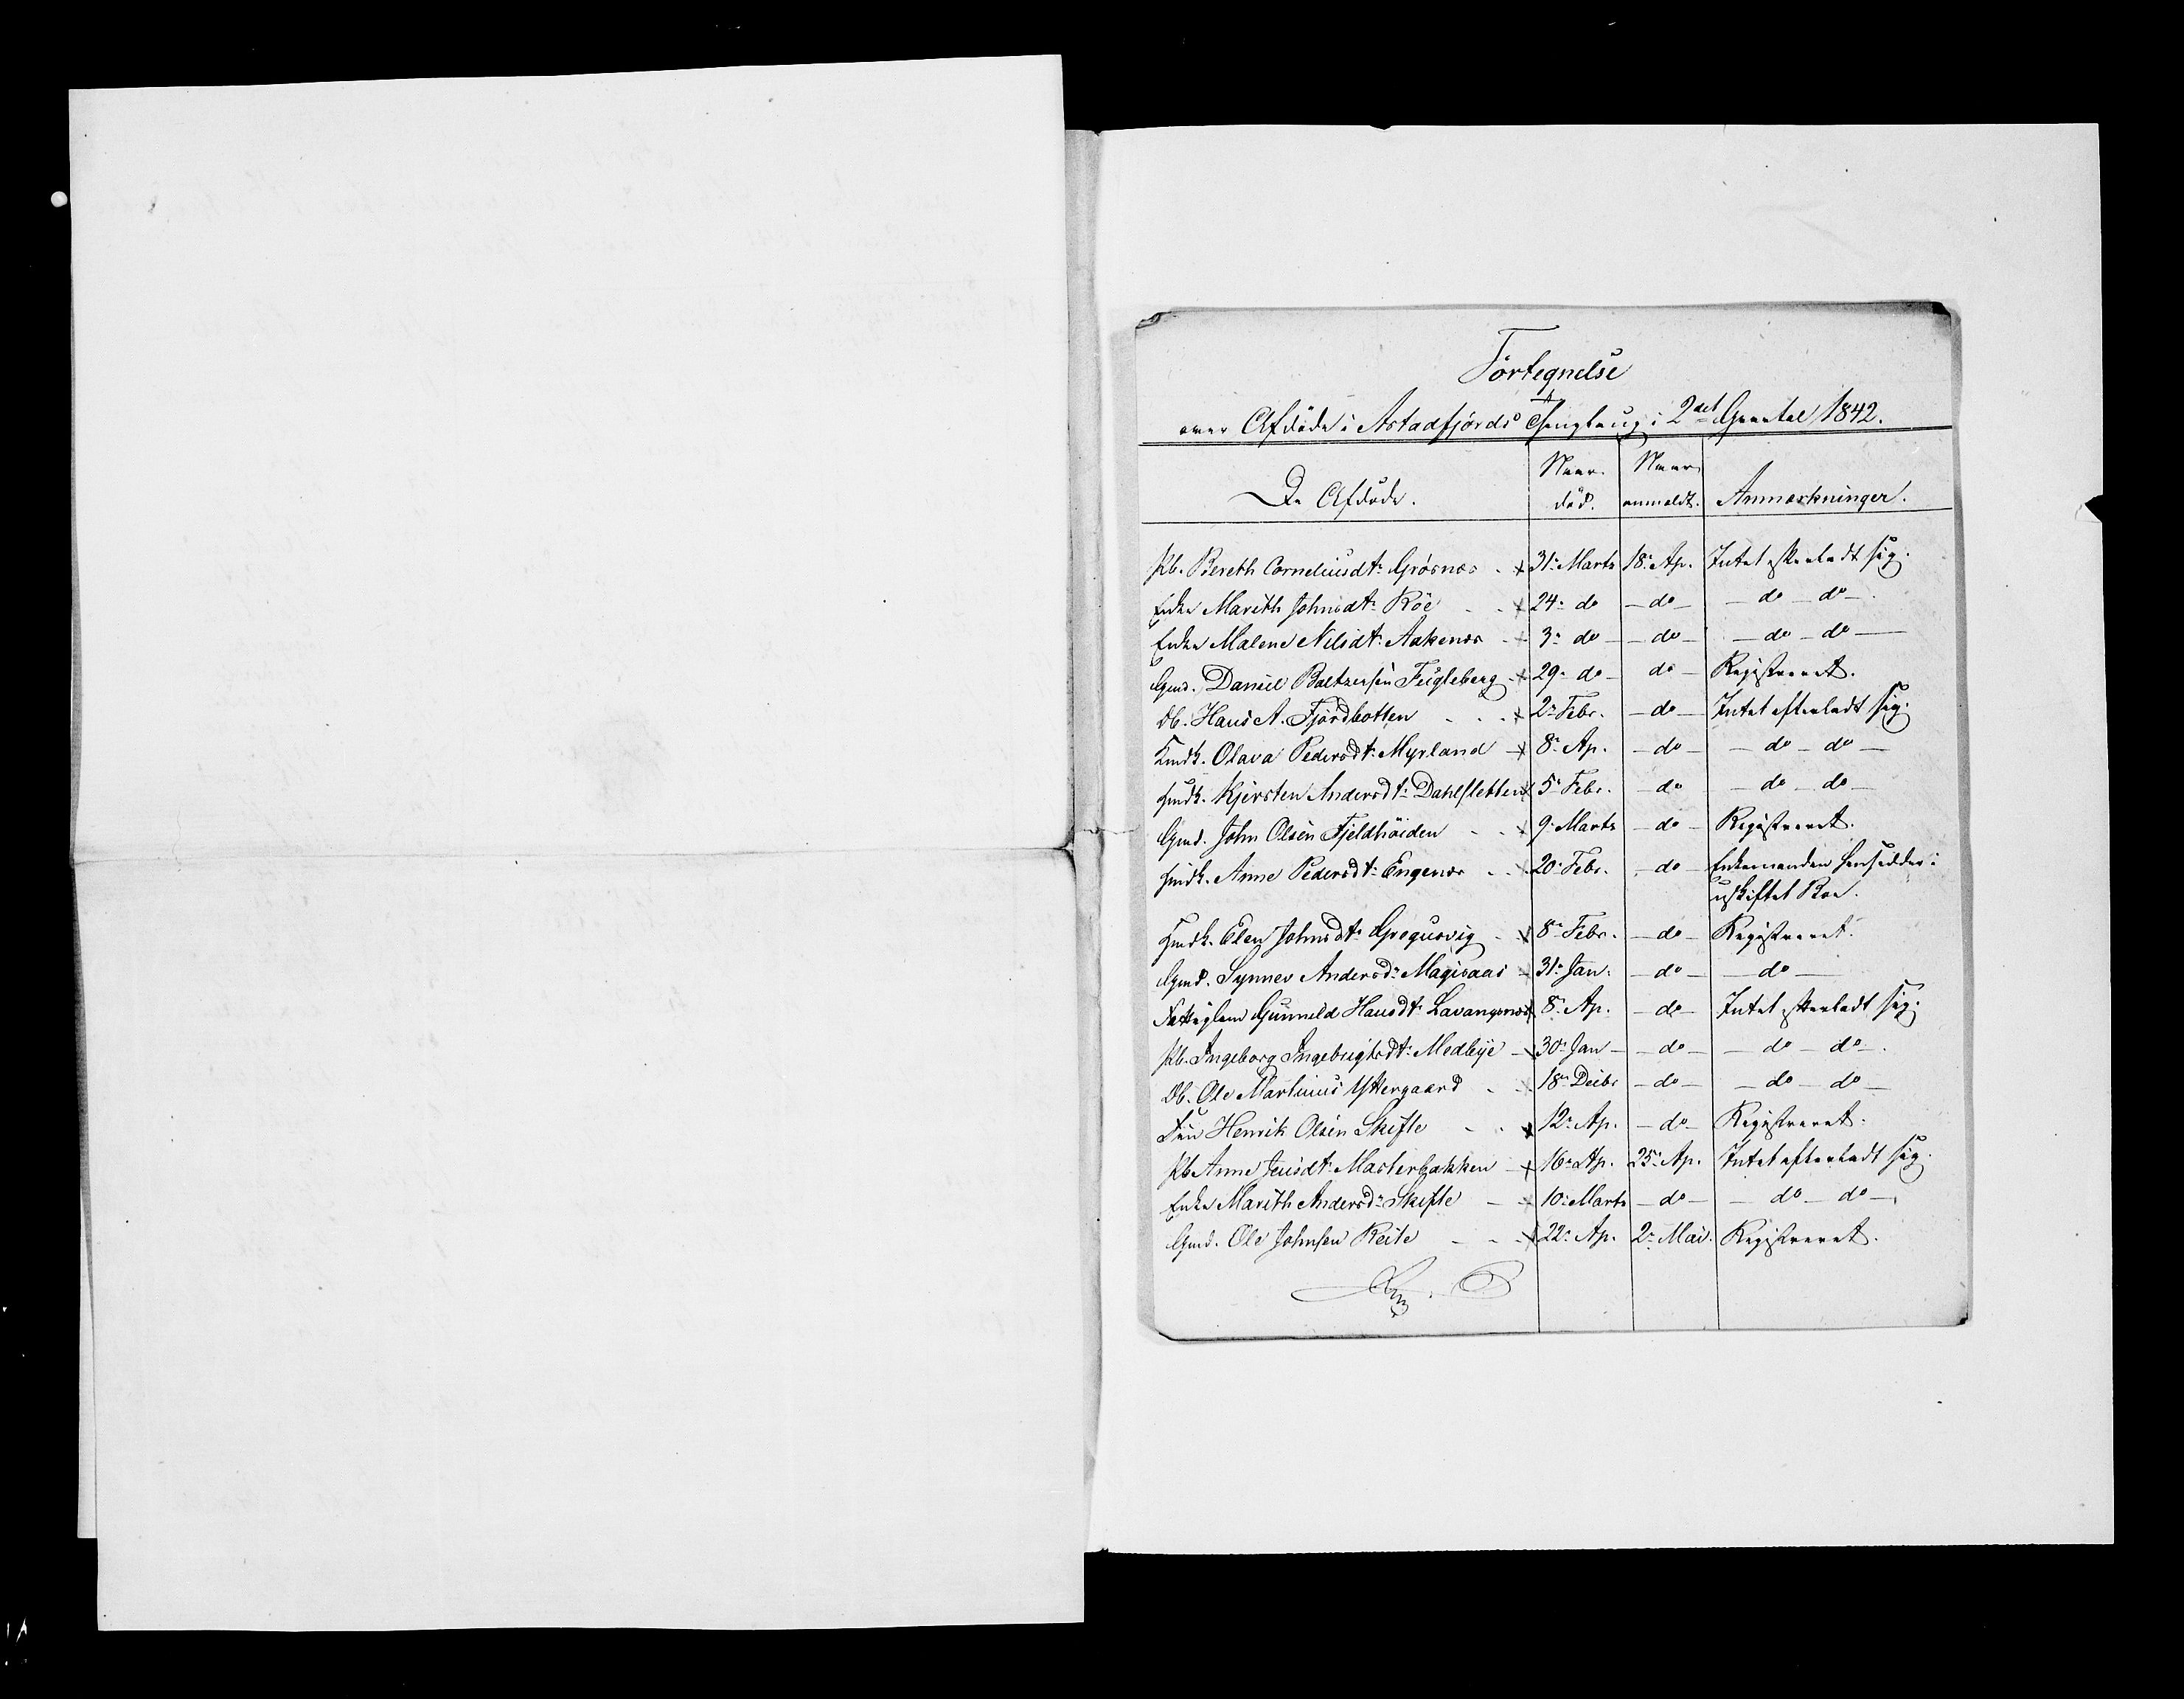 Förtegnelse
over Afdöde i Astadfjords Thinglaug i 2det Qvartal 1842.
De Afdöde. Naar död. Naar anmeldt. Anmærkninger.
Pb. Bereth Corneliusdt: Grøsnæs 31: Marts 18: Ap. Intet efterladt sig.
Enke Marith Johnsdt: Röe 24: do - do - - do - do -
Enke Malene Nilsdt: Aakenæs 3: do - do - - do - do -
Gmd. Daniel Baltzersen Fugleberg 29: do - do - Registreret.
Db. Hans A. Fjordbotten 2: Febr. - do - Intet efterladt sig.
Kmdk. Olava Pedersdt: Myrland 8: Ap. - do - - do - do -
Hmdk. Kjersten Andersdt: Dahlsletten 5: Febr. - do - do - do -
Gmd. John Olsen Fjeldhöiden 9: Marts - do - Registreret.
Hmdk. Anne Pedersdt: Engenæs 20: Febr. - do - Enkemanden hensidder i
uskiftet Boe.
Hmdk. Elen Johnsdt: Grøgusvig 8: Febr. - do - Registreret.
Gmd. Synnev Andersd: Magisaas 31: Jan. - do - - do -
Fattiglem Gunnild Hansdt: Lavangsnæs 8: Ap. - do - Intet efterladt sig.
Pb. Ingeborg Ingebrigtsdt: Medbye 30: Jan - do - - do - do -
Db. Ole Martinus Yttergaard 18: Decbr - do - - do - do -
Henrik Olsen Skifte 12: Ap. - do - Registreret.
Pb Anne Jensdt: Masterbakken 16: Ap. 25: Ap. Intet efterladt sig.
Enke Marith Andersd: Skifte 10: Marts - do - - do - do -
Gmd. Ole Johnsen Reite 22: Ap. 2: Mai. Registreret.